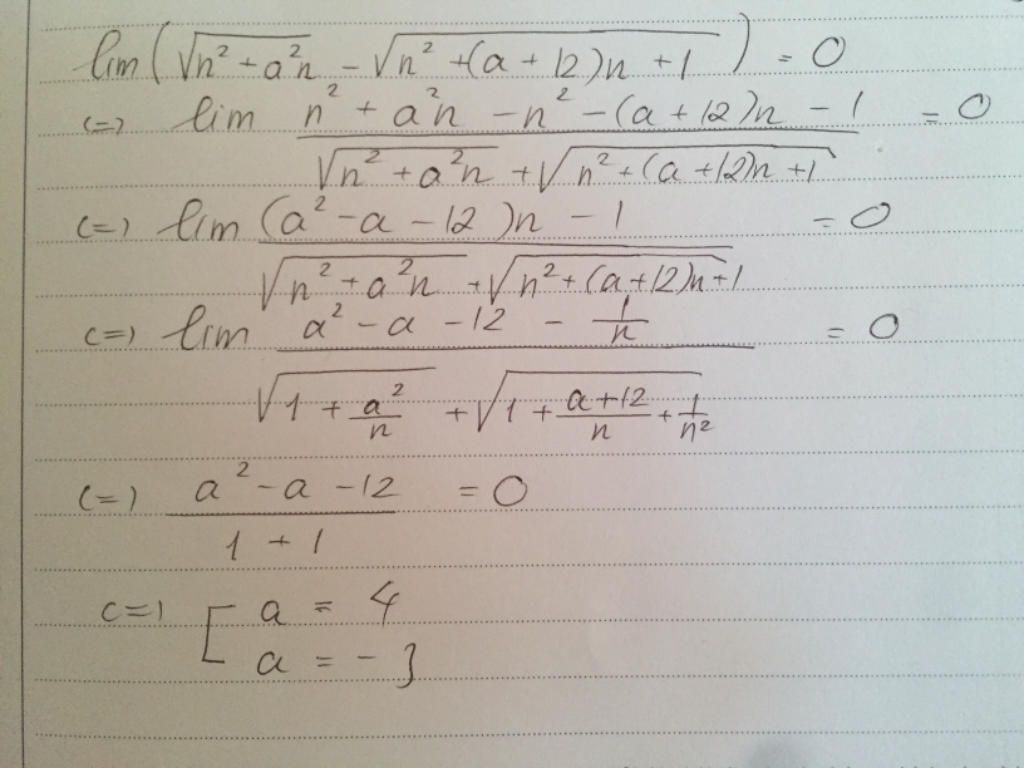 lim(√(n² + a²n) - √(n² + (a + 12)n + 1)) = 0
(=) lim (n² + a²n - n² - (a + 12)n - 1) / (√(n² + a²n) + √(n² + (a + 12)n + 1)) = 0
(=) lim ((a² - a - 12)n - 1) / (√(n² + a²n) + √(n² + (a + 12)n + 1)) = 0
(=) lim (a² - a - 12 - 1/n) / (√(1 + a²/n) + √(1 + (a + 12)/n + 1/n²)) = 0
(=) (a² - a - 12) / (1 + 1) = 0
(=) [ a = 4
a = - 3